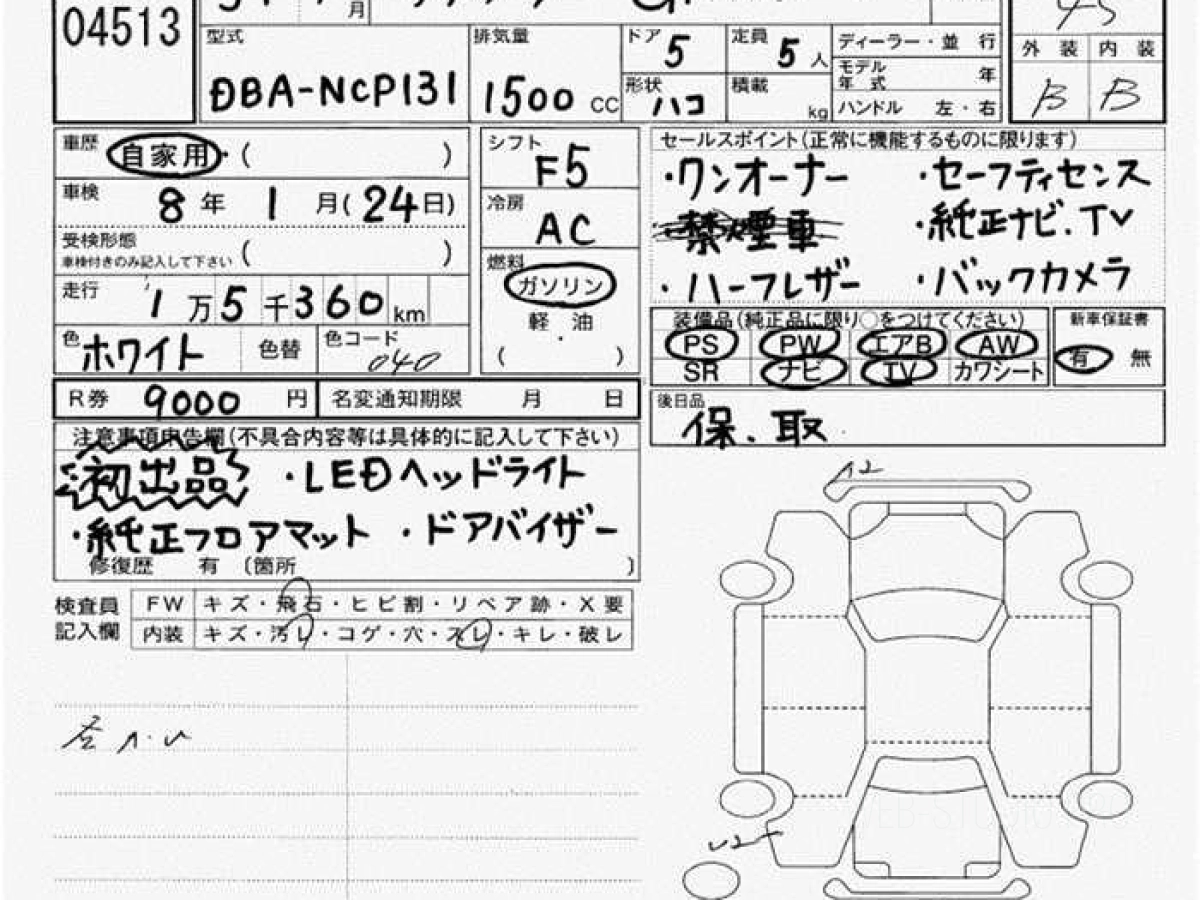 04513
月
型式
DBA-NCP131
排気量
1500 CC
ドア
5
形状
ハコ
定員
5人
積載
kg
ディーラー・並 行
モデル年式 年
ハンドル 左・右
4.5
外 装 内 装
B B
車歴
自家用・( )
車検
8年 1月(24日)
受検形態
車検付きのみ記入して下さい ( )
走行
1万5千360km
色
ホワイト
色替
色コード
040
シフト
F5
冷房
AC
燃料
ガソリン
軽 油
( ・ )
セールスポイント(正常に機能するものに限ります)
・ワンオーナー ・セーフティセンス
禁煙車 ・純正ナビ.TV
・ハーフレザー ・バックカメラ
装備品(純正品に限り○をつけてください)
PS PW エアB AW
SR ナビ TV カワシート
新車保証書
有 無
R券 9000円
名変通知期限 月 日
後日品
保、取
注意事項申告欄(不具合内容等は具体的に記入して下さい)
初出品 ・LEDヘッドライト
・純正フロアマット ・ドアバイザー
修復歴 有 〔箇所 〕
検査員
記入欄
FW キズ・飛石・ヒビ割・リペア跡・X要
内装 キズ・汚レ・コゲ・穴・スレ・キレ・破レ
A2
U2